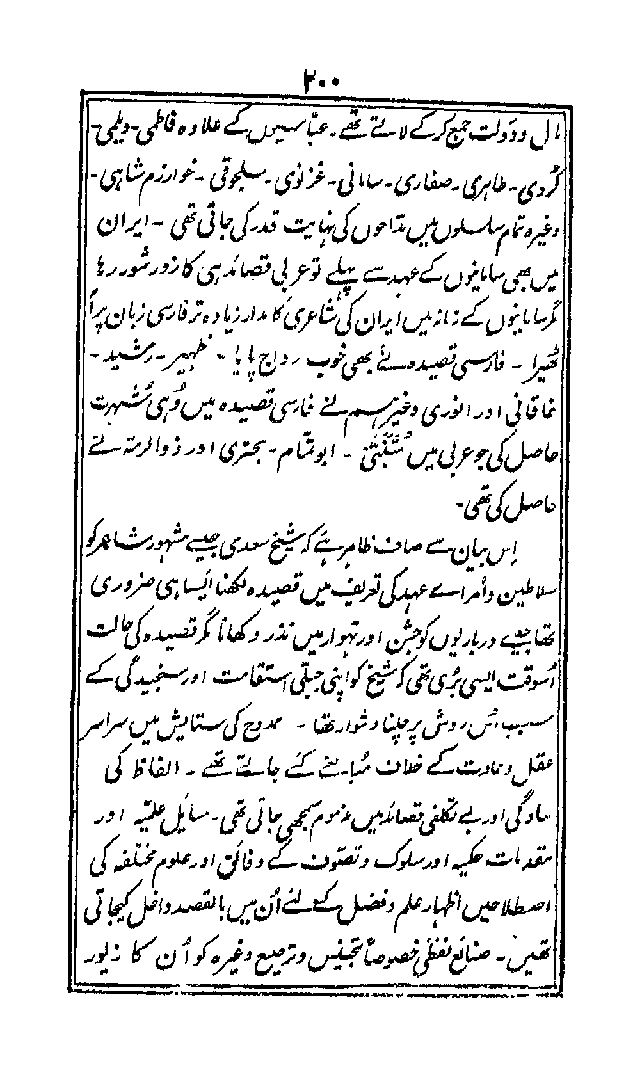 ۲۰۰
مال و دولت جمع کرکے لاتے تھے۔ عبّاسیوں کے علاوہ فاطمی۔ دیلمی۔
کُردی۔ طاہری۔ صفاری۔ سامانی۔ غزنوی۔ سلجوقی۔ خوارزم شاہی۔
وغیرہ تمام سلسلوں میں مدّاحوں کی نہایت قدر کی جاتی تھی۔ ایران
میں بھی سامانیوں کے عہد سے پہلے تو عربی قصائد ہی کا زور شور رہا
مگر سامانیوں کے زمانہ میں ایران کی شاعری کا مدار زیادہ تر فارسی زبان پر آ
ٹھیرا۔ فارسی قصیدہ نے بھی خوب رواج پایا۔ ظہیر۔ رشید۔
خاقانی اور انوری وغیرہم نے فارسی قصیدہ میں وُہی شُہرت
حاصل کی جو عربی میں مُتنَبّی۔ ابو تمّام۔ بحتری اور ذوالرمہ نے
حاصل کی تھی۔
اِس بیان سے صاف ظاہر ہے کہ شیخ سعدی جیسے مشہور شاعر کو
سلاطین و اُمراے عہد کی تعریف میں قصیدہ لکھنا ایسا ہی ضروری
تھا جیسے درباریوں کو جشن اور تہوار میں نذر دکھانا مگر قصیدہ کی حالت
اُسوقت ایسی بُری تھی کہ شیخ کو اپنی جبلّی استقامت اور سنجیدگی کے
سبب اُس روش پر چلنا دشوار تھا۔ ممدوح کی ستایش میں سراسر
عقل و عادت کے خلاف مُبالغے کئے جاتے تھے۔ الفاظ کی
سادگی اور بے تکلفی قصائد میں مذموم سمجھی جاتی تھی۔ مسایٔل علمیّہ اور
مقدمات حکمیہ اور سلوک و تصوّف کے دقائق اور علوم مختلفہ کی
اصطلاحیں اظہار علم و فضل کے لئے اُن میں بالقصد داخل کیجاتی
تھیں۔ صنائع لفظی خصوصاً تجنیس و ترصیع وغیرہ کو اُن کا زیور